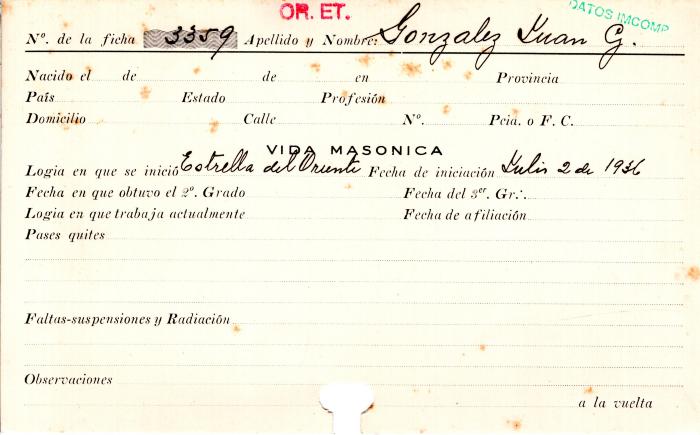 OR. ET.
DATOS IMCOMP
Nº. de la ficha 3359 Apellido y Nombre: Gonzalez Juan G.
Nacido el de de en Provincia
País Estado Profesión
Domicilio Calle Nº. Pcia. o F. C.
VIDA MASONICA
Logia en que se inició Estrella del Oriente Fecha de iniciación Julio 2 de 1936
Fecha en que obtuvo el 2º. Grado Fecha del 3er. Gr∴.
Logia en que trabaja actualmente Fecha de afiliación
Pases quites
Faltas-suspensiones y Radiación
Observaciones
a la vuelta